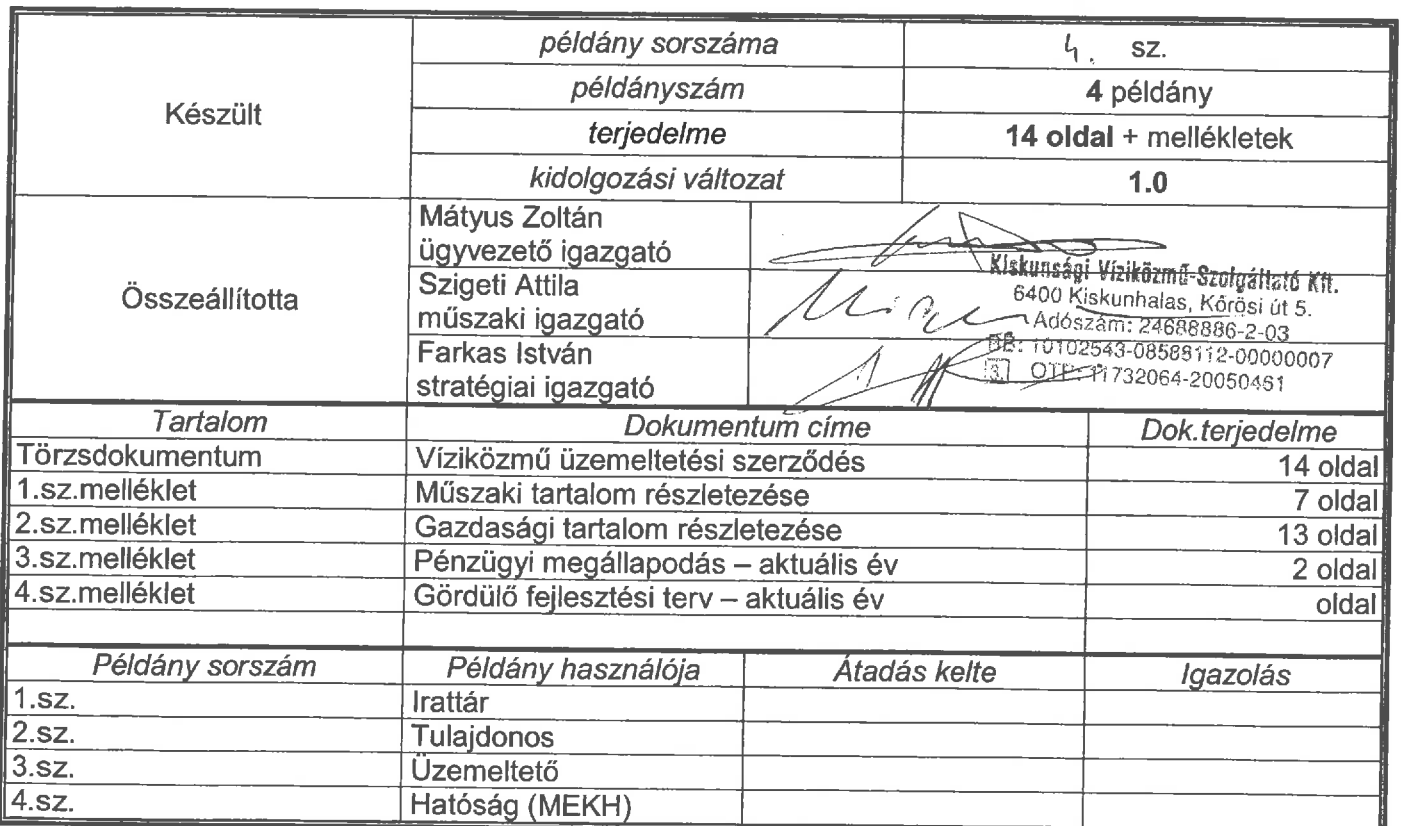 Készült
példány sorszáma 4. sz.
példányszám 4 példány
terjedelme 14 oldal + mellékletek
kidolgozási változat 1.0
Összeállította
Mátyus Zoltán
ügyvezető igazgató
Szigeti Attila
műszaki igazgató
Farkas István
stratégiai igazgató
Kiskunsági Víziközmű-Szolgáltató Kft.
6400 Kiskunhalas, Kőrösi út 5.
Adószám: 24688886-2-03
BB: 10102543-08588112-00000007
3. OTP: 11732064-20050461
Tartalom Dokumentum címe Dok.terjedelme
Törzsdokumentum Víziközmű üzemeltetési szerződés 14 oldal
1.sz.melléklet Műszaki tartalom részletezése 7 oldal
2.sz.melléklet Gazdasági tartalom részletezése 13 oldal
3.sz.melléklet Pénzügyi megállapodás – aktuális év 2 oldal
4.sz.melléklet Gördülő fejlesztési terv – aktuális év oldal
Példány sorszám Példány használója Átadás kelte Igazolás
1.sz. Irattár
2.sz. Tulajdonos
3.sz. Üzemeltető
4.sz. Hatóság (MEKH)